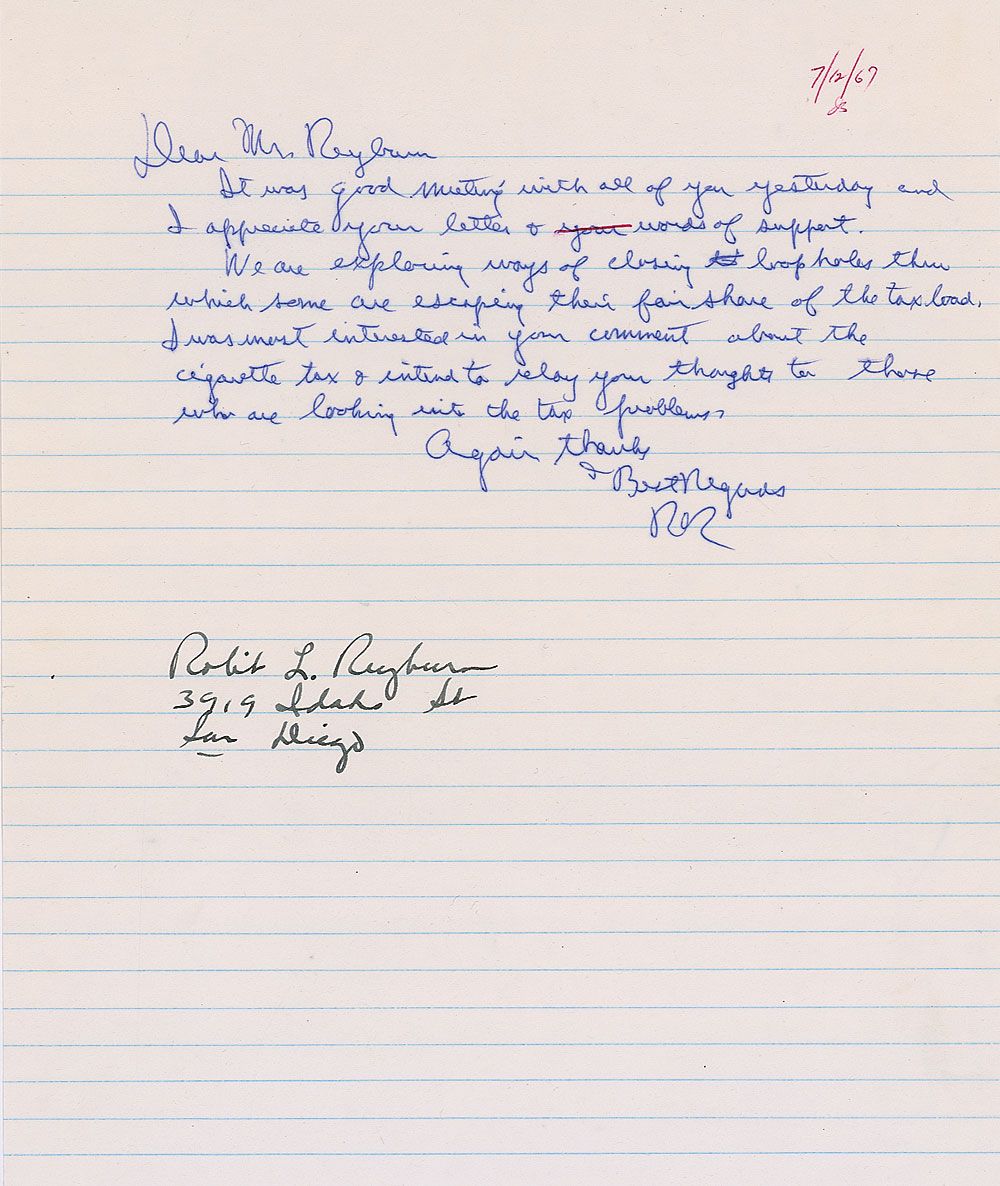 7/12/67
Dear Mr. Reyburn
It was good meeting with all of you yesterday and
I appreciate your letter & your words of support.
We are exploring ways of closing loop holes thru
which some are escaping their fair share of the tax load.
I was most interested in your comment about the
cigarette tax & intend to relay your thoughts to those
who are looking into the tax problems.
Again thanks
& Best Regards
RR
Robt L. Reyburn
3919 Idaho St
San Diego